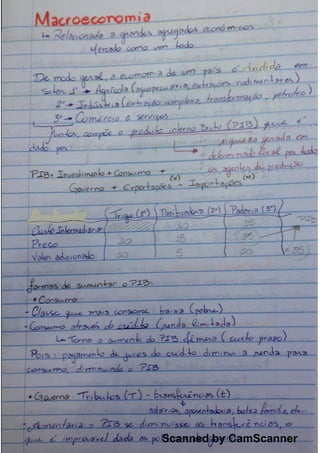 Macroeconomia
↳ Relacionada a grandes agregados econômicos
Mercado como um todo
De modo geral, a economia de um país é dividida em
setor 1º → Agrícola (agropecuária, extrações rudimentares)
2º → Indústria (extração complexa, transformação, petróleo)
3º → Comércio e serviços
Juntos, compõe o produto interno Bruto (PIB) que é
dado por: riqueza gerada em
determinado local por todos
os agentes de produção
PIB = Investimento + Consumo +
Governo + Exportações (x) - Importações (M)
Trigo (1º) Panificadora (2º) Padaria (3º)
PIB
Custo Intermediário 10 15
Preço 10 15 35
Valor adicionado 10 5 20 = 35
formas de aumentar o PIB:
• Consumo
- Classe que mais consome: baixa (pobre)
- Consumo através do crédito (renda limitada)
↳ Torna o aumento do PIB efêmero (curto prazo)
Pois: pagamento de juros do crédito diminui a renda para
consumo, diminuindo o PIB
• Governo: Tributos (T) - transferências (t)
salários, aposentadoria, bolsa família, etc
- Aumentaria o PIB se diminuisse as transferências, o
que é improvável dada as
Scanned by CamScanner